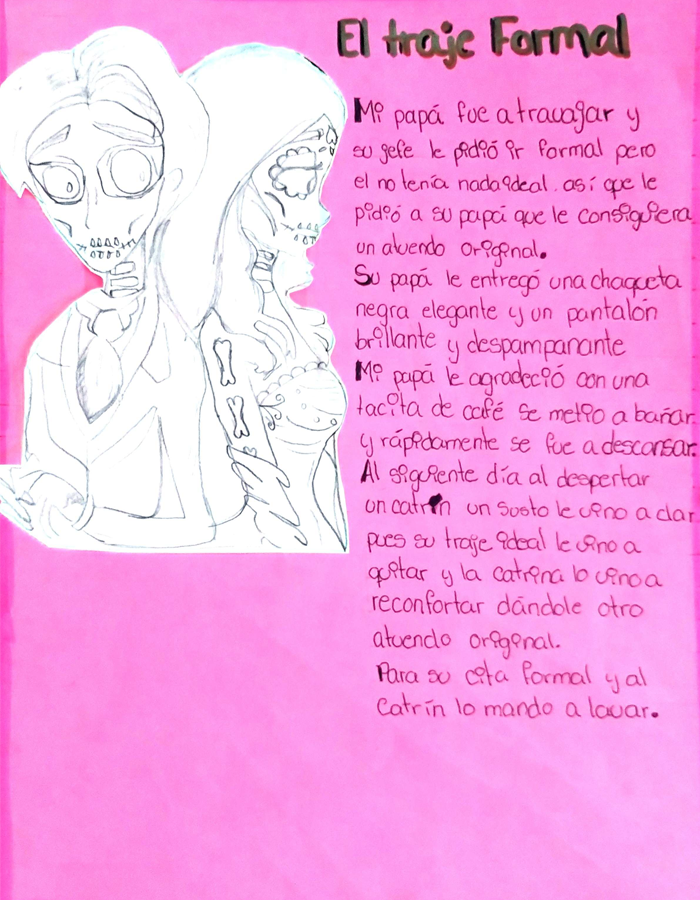 El traje Formal
Mi papá fue a travajar y
su jefe le pidió ir formal pero
el no tenía nada ideal. así que le
pidió a su papá que le consiguiera
un atuendo original.
Su papá le entregó una chaqueta
negra elegante y un pantalón
brillante y despampanante
Mi papá le agradeció con una
tacita de café se metio a bañar
y rápidamente se fue a descansar.
Al siguiente día al despertar
un catrín un susto le vino a dar
pues su traje ideal le vino a
quitar y la catrina lo vino a
reconfortar dándole otro
atuendo original.
Para su cita formal y al
Catrín lo mando a lavar.